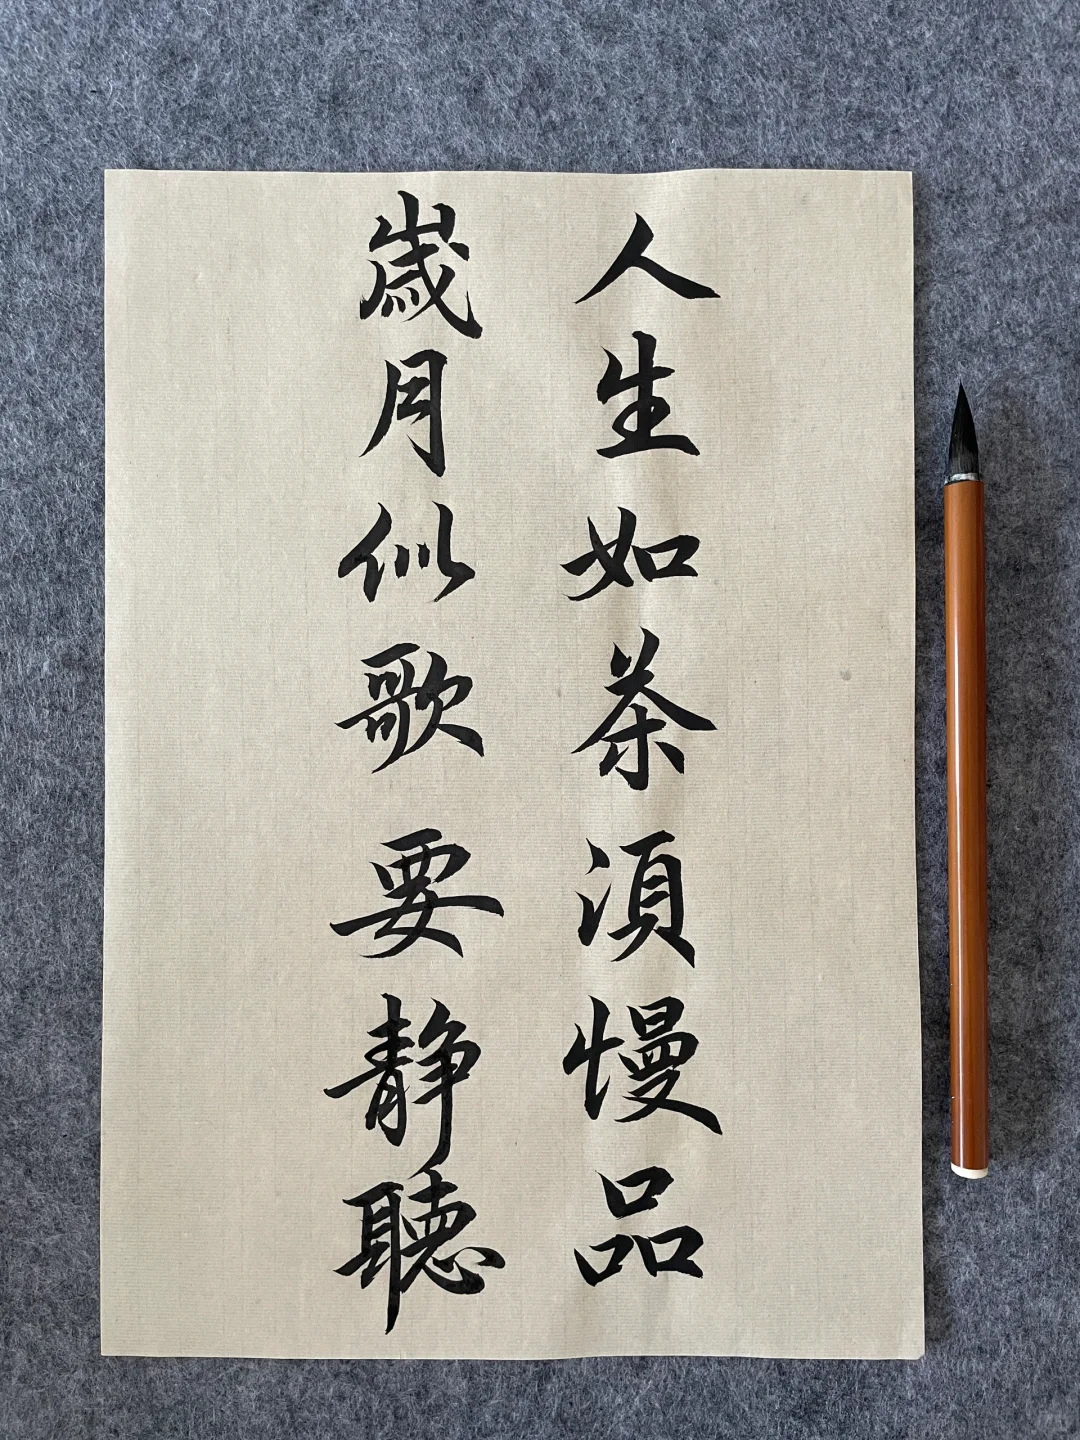 人生如茶須慢品
歲月似歌要静聽